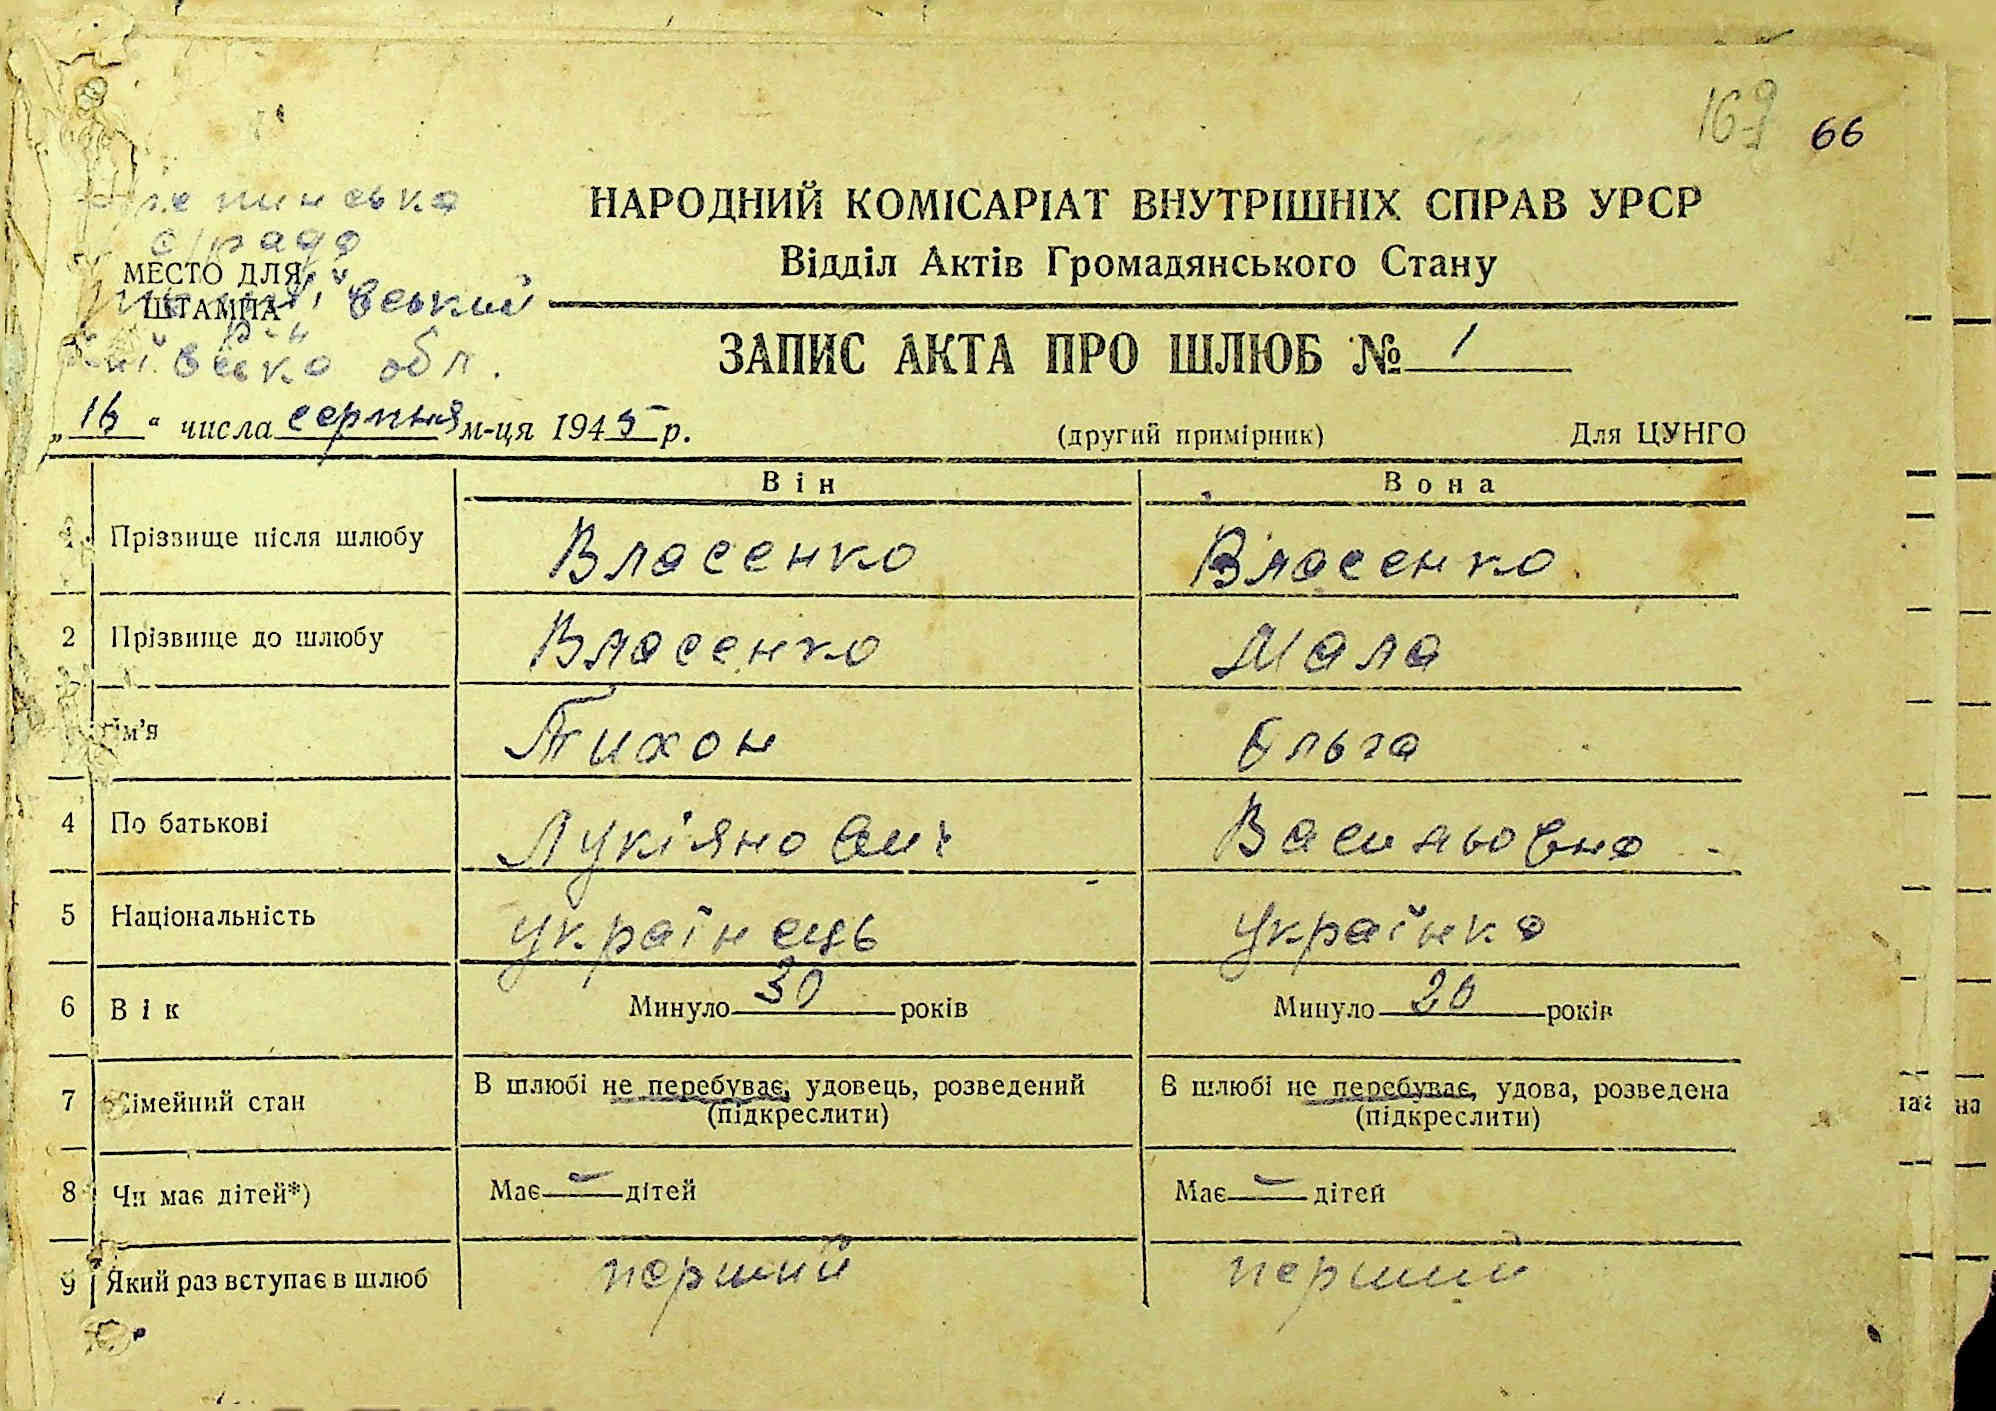 169 66
НАРОДНИЙ КОМІСАРІАТ ВНУТРІШНІХ СПРАВ УРСР
Відділ Актів Громадянського Стану
с/рада
МЕСТО ДЛЯ
ШТАМПА
р-н
обл.
ЗАПИС АКТА ПРО ШЛЮБ № 1
„16“ числа серпня м-ця 1945 р.
(другий примірник) Для ЦУНГО
Він Вона
1. Прізвище після шлюбу Власенко Власенко
2 Прізвище до шлюбу Власенко Мала
Ім'я Тихон Ольга
4 По батькові Лукіянович Васильовна
5 Національність українець українка
6 Вік Минуло 30 років Минуло 20 років
7 Сімейний стан В шлюбі не перебуває, удовець, розведений В шлюбі не перебуває, удова, розведена
(підкреслити) (підкреслити)
8 Чи має дітей*) Має — дітей Має — дітей
9 Який раз вступає в шлюб перший перший